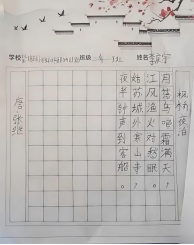 学校 班级 姓名
枫桥夜泊
月落乌啼霜满天，
江枫渔火对愁眠。
姑苏城外寒山寺，
夜半钟声到客船。
唐 张继